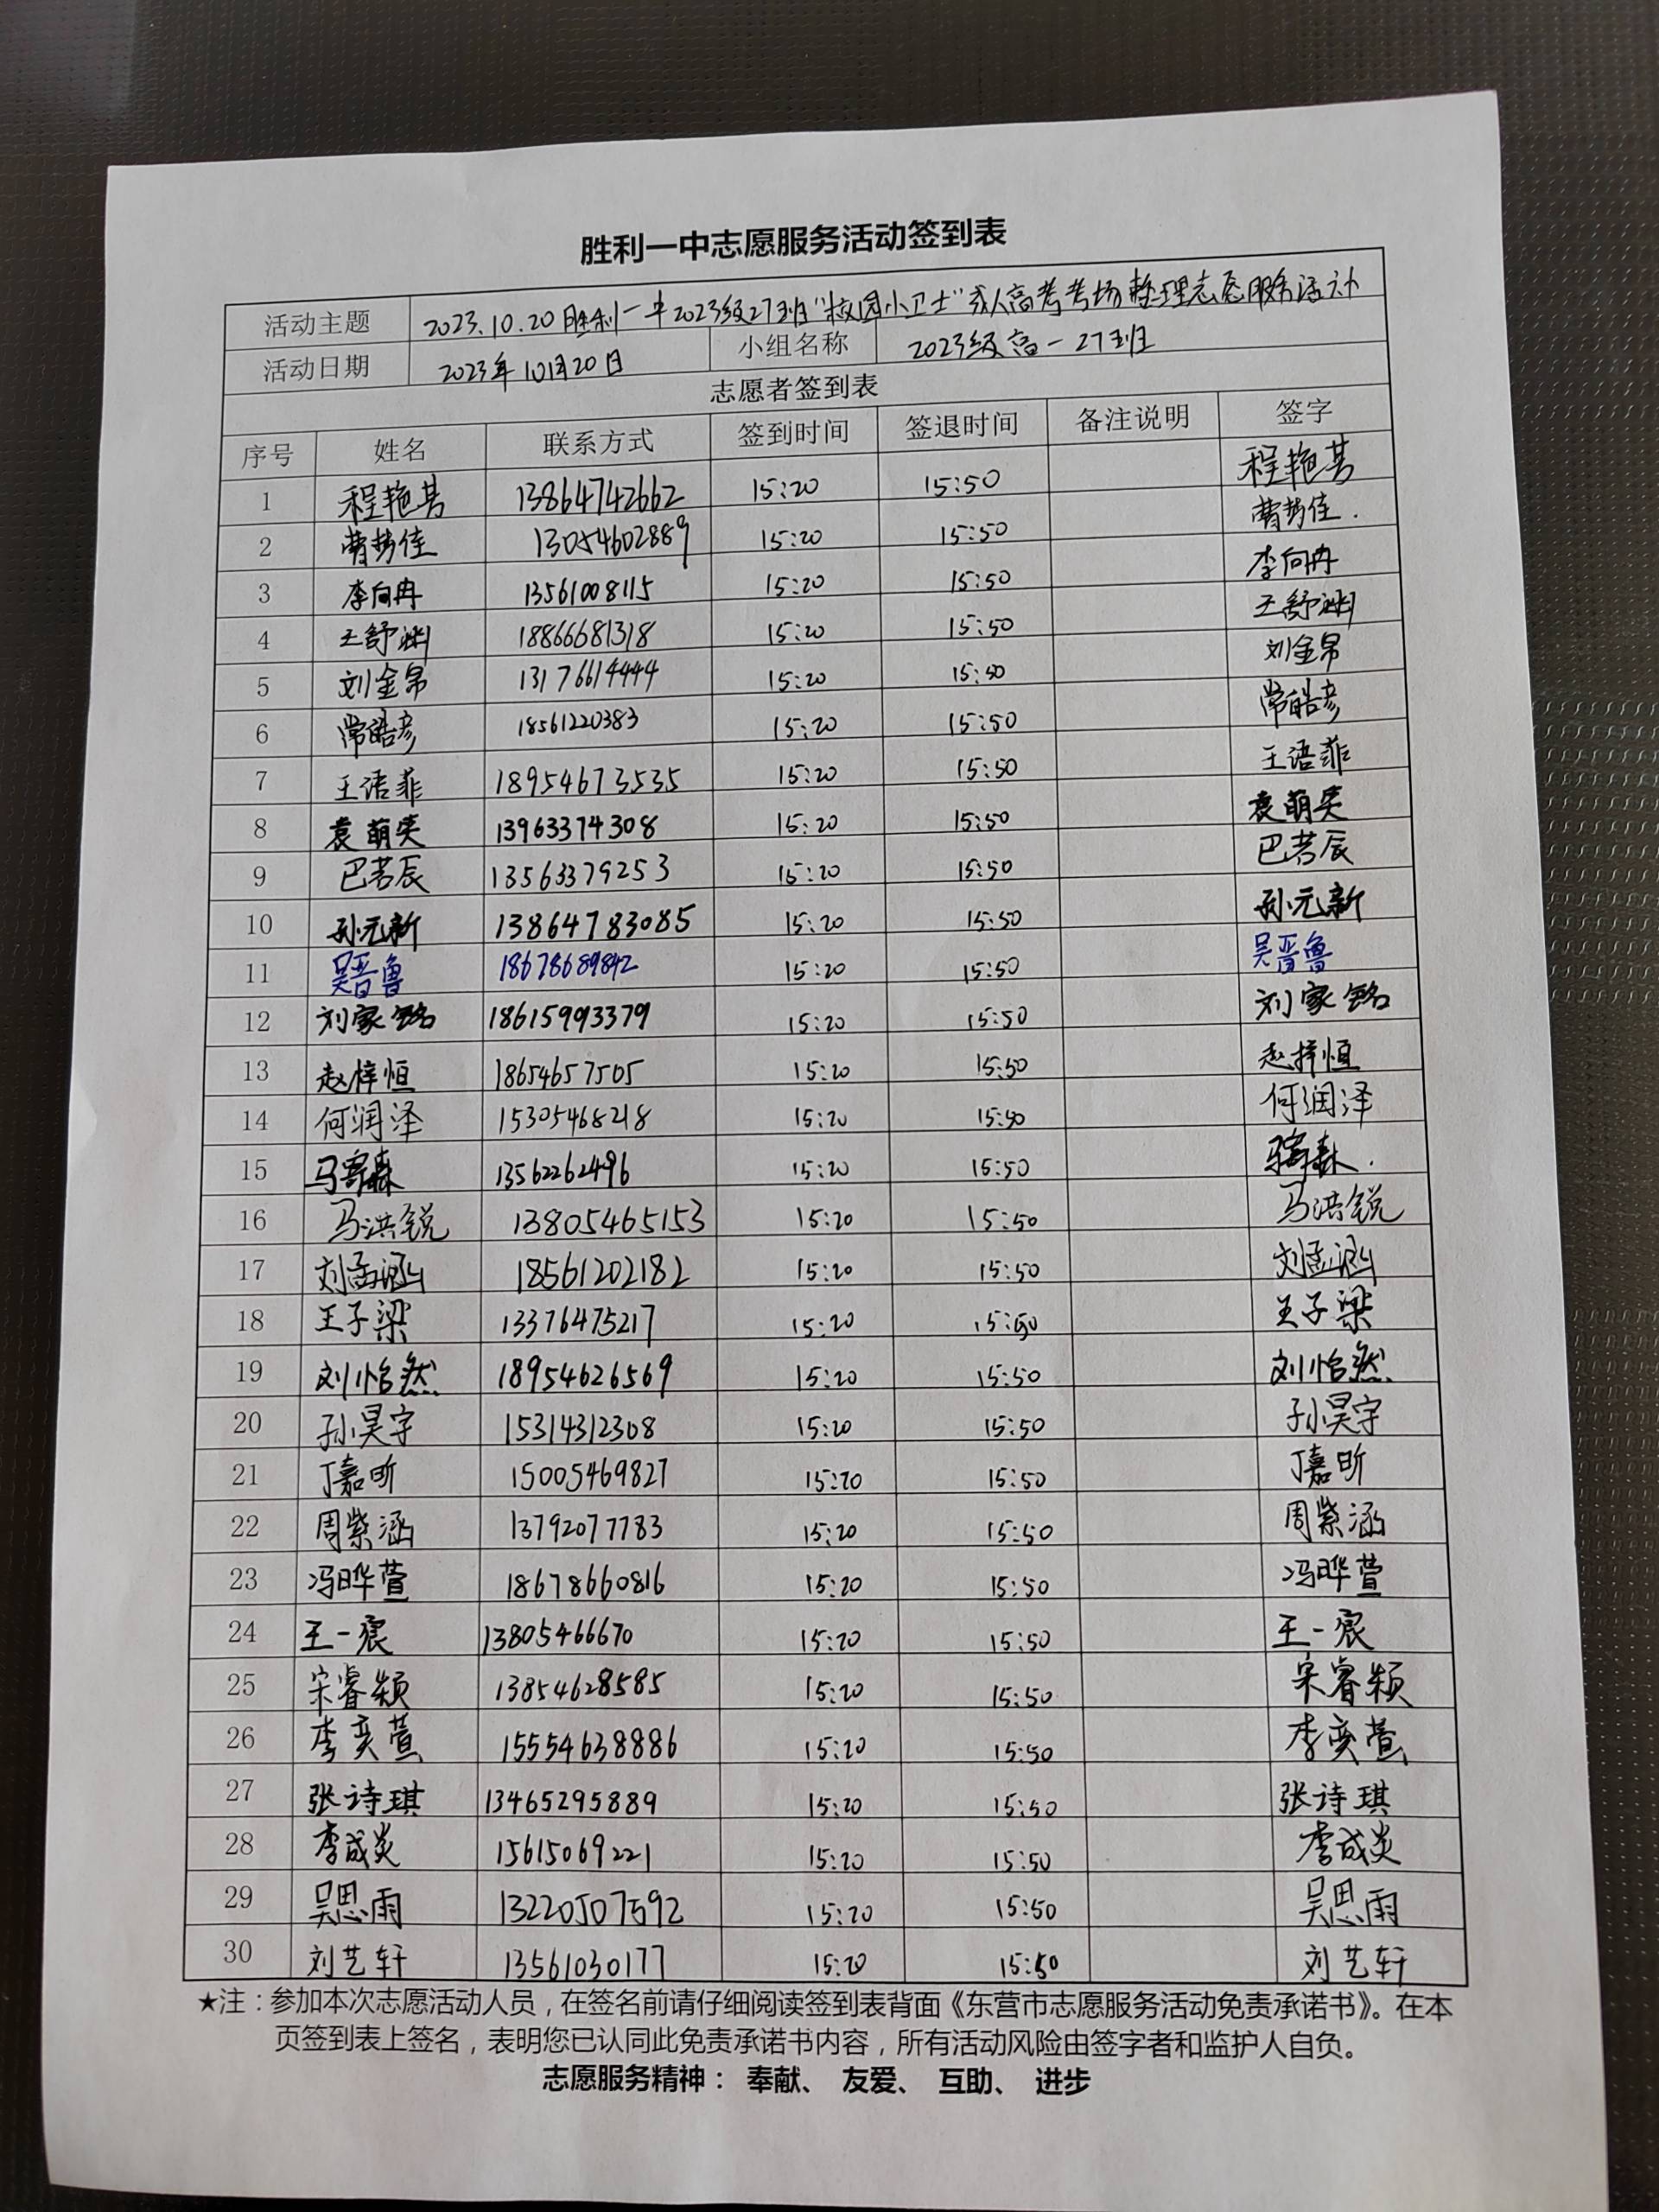 胜利一中志愿服务活动签到表
活动主题 2023.10.20胜利一中2023级27班“校园小卫士”成人高考考场整理志愿服务活动
活动日期 2023年10月20日 小组名称 2023级高一27班
志愿者签到表
序号 姓名 联系方式 签到时间 签退时间 备注说明 签字
1 程艳茗 13864742662 15:20 15:50 程艳茗
2 曹梦佳 13054602889 15:20 15:50 曹梦佳.
3 李向冉 13561008115 15:20 15:50 李向冉
4 王舒渊 18866681318 15:20 15:50 王舒渊
5 刘金帛 13176614444 15:20 15:50 刘金帛
6 常皓彦 18561220383 15:20 15:50 常皓彦
7 王语菲 18954673535 15:20 15:50 王语菲
8 袁萌笑 13963374308 15:20 15:50 袁萌笑
9 巴若辰 13563379253 15:20 15:50 巴若辰
10 孙元新 13864783085 15:20 15:50 孙元新
11 吴晋鲁 18678689842 15:20 15:50 吴晋鲁
12 刘家铭 18615993379 15:20 15:50 刘家铭
13 赵梓恒 18654657505 15:20 15:50 赵梓恒
14 何润泽 15305468218 15:20 15:50 何润泽
15 马寄森 13562262496 15:20 15:50 马寄森.
16 马洪锐 13805465153 15:20 15:50 马洪锐
17 刘孟涵 18561202182 15:20 15:50 刘孟涵
18 王子梁 13376475217 15:20 15:50 王子梁
19 刘怡然 18954626569 15:20 15:50 刘怡然
20 孙昊宇 15314312308 15:20 15:50 孙昊宇
21 丁嘉昕 15005469827 15:20 15:50 丁嘉昕
22 周紫涵 13792077783 15:20 15:50 周紫涵
23 冯晔萱 18678660816 15:20 15:50 冯晔萱
24 王一宸 13805466670 15:20 15:50 王一宸
25 宋睿颖 13854628585 15:20 15:50 宋睿颖
26 李奕萱 15554638886 15:20 15:50 李奕萱
27 张诗琪 13465295889 15:20 15:50 张诗琪
28 李成炎 15615069221 15:20 15:50 李成炎
29 吴思雨 13220507592 15:20 15:50 吴思雨
30 刘艺轩 13561030177 15:20 15:50 刘艺轩
★注：参加本次志愿活动人员，在签名前请仔细阅读签到表背面《东营市志愿服务活动免责承诺书》。在本
页签到表上签名，表明您已认同此免责承诺书内容，所有活动风险由签字者和监护人自负。
志愿服务精神： 奉献、 友爱、 互助、 进步